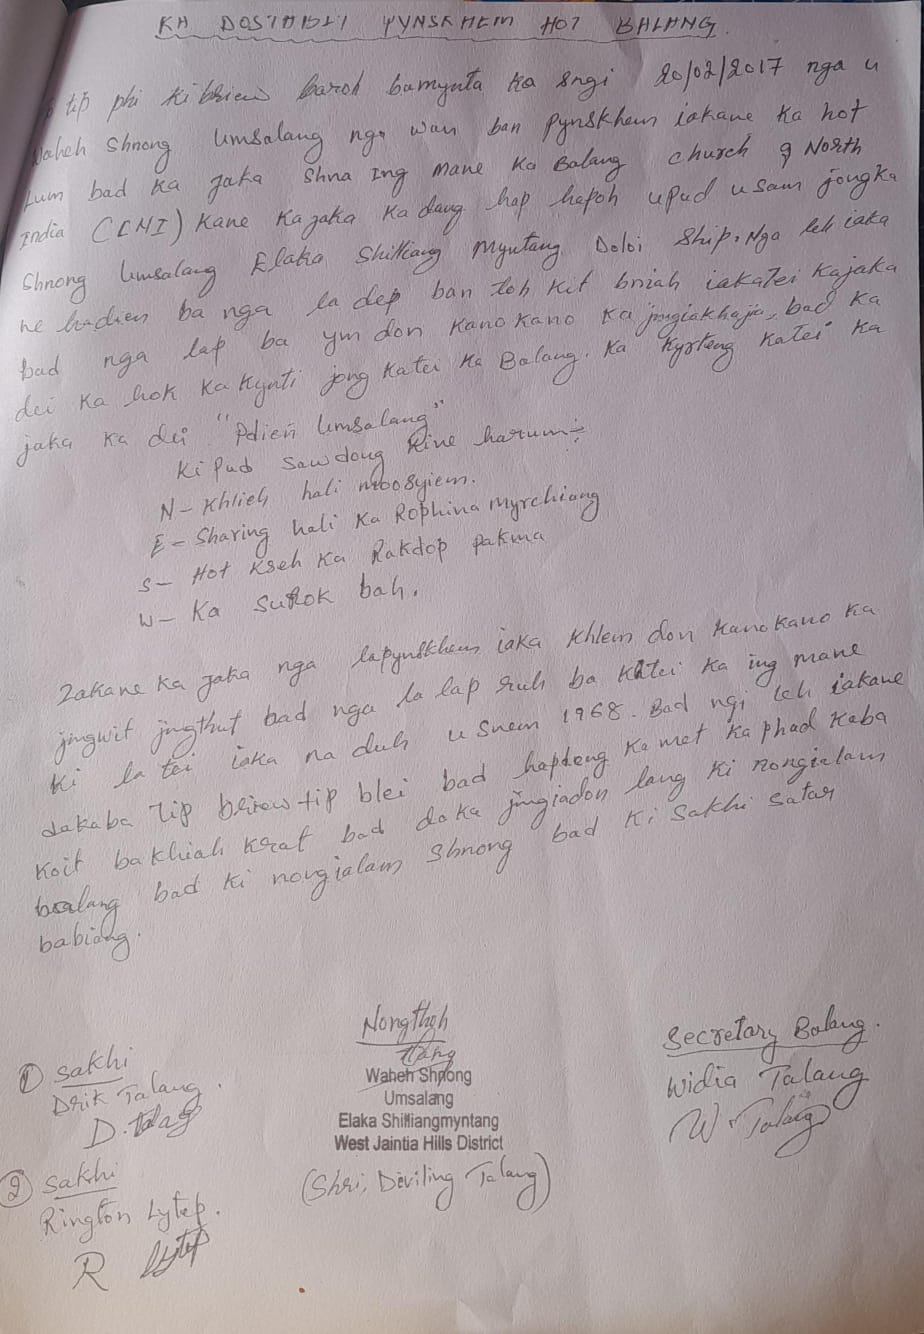 KA DOSTABIJ PYNSKHEM HOT BALANG
tip phi kibriew baroh bamynta ka sngi 20/02/2017 nga u
Waheh Shnong Umsalang nga wan ban pynskhem iakane ka hot
Lum bad ka jaka Shna Ing mane ka Balang church of North
India (CNI) Kane Kajaka Ka dang hap hapoh upud u sam jongka
Shnong Umsalang Elaka Shilliang Myntang Doloi Ship. Nga leh iaka
ne hadien ba nga la dep ban toh kit bniah iakatei Kajaka
bad nga lap ba ym don Kano Kano Ka jingiakhajia, bad Ka
dei Ka hok Ka Kynti jong Katei Ka Balang. Ka Kyrteng Katei Ka
jaka Ka dei "Pdien Umsalang"
Ki Pud Sawdong Kine harum:-
N- Khlieh hali moosyiem.
E- Sharing hali Ka Rophina Myrchiang
S- Hot Kseh Ka Rakdop Pakma
W- Ka Surok bah.
Iakane Ka Jaka nga lapynskhem iaka Khlem don KanoKano Ka
jingwit jingthut bad nga la lap ruh ba Katei Ka ing mane
Ki la tei iaka na duh u Snem 1968. Bad ngi leh iakane
dakaba Tip briew tip blei bad hapdeng Ka met Ka phad Kaba
Koit bakhiah Krat bad da ka jingiadon lang Ki nongialam
balang bad Ki nongialam Shnong bad Ki Sakhi Satar
babiang.
① Sakhi
Drik Talang.
D. Talang
② Sakhi
Rington Lytep.
R Lytep
Nongthoh
Waheh Shnong
Umsalang
Elaka Shilliangmyntang
West Jaintia Hills District
(Shri, Deviling Talang)
Secretary Balang.
Widia Talang
W. Talang